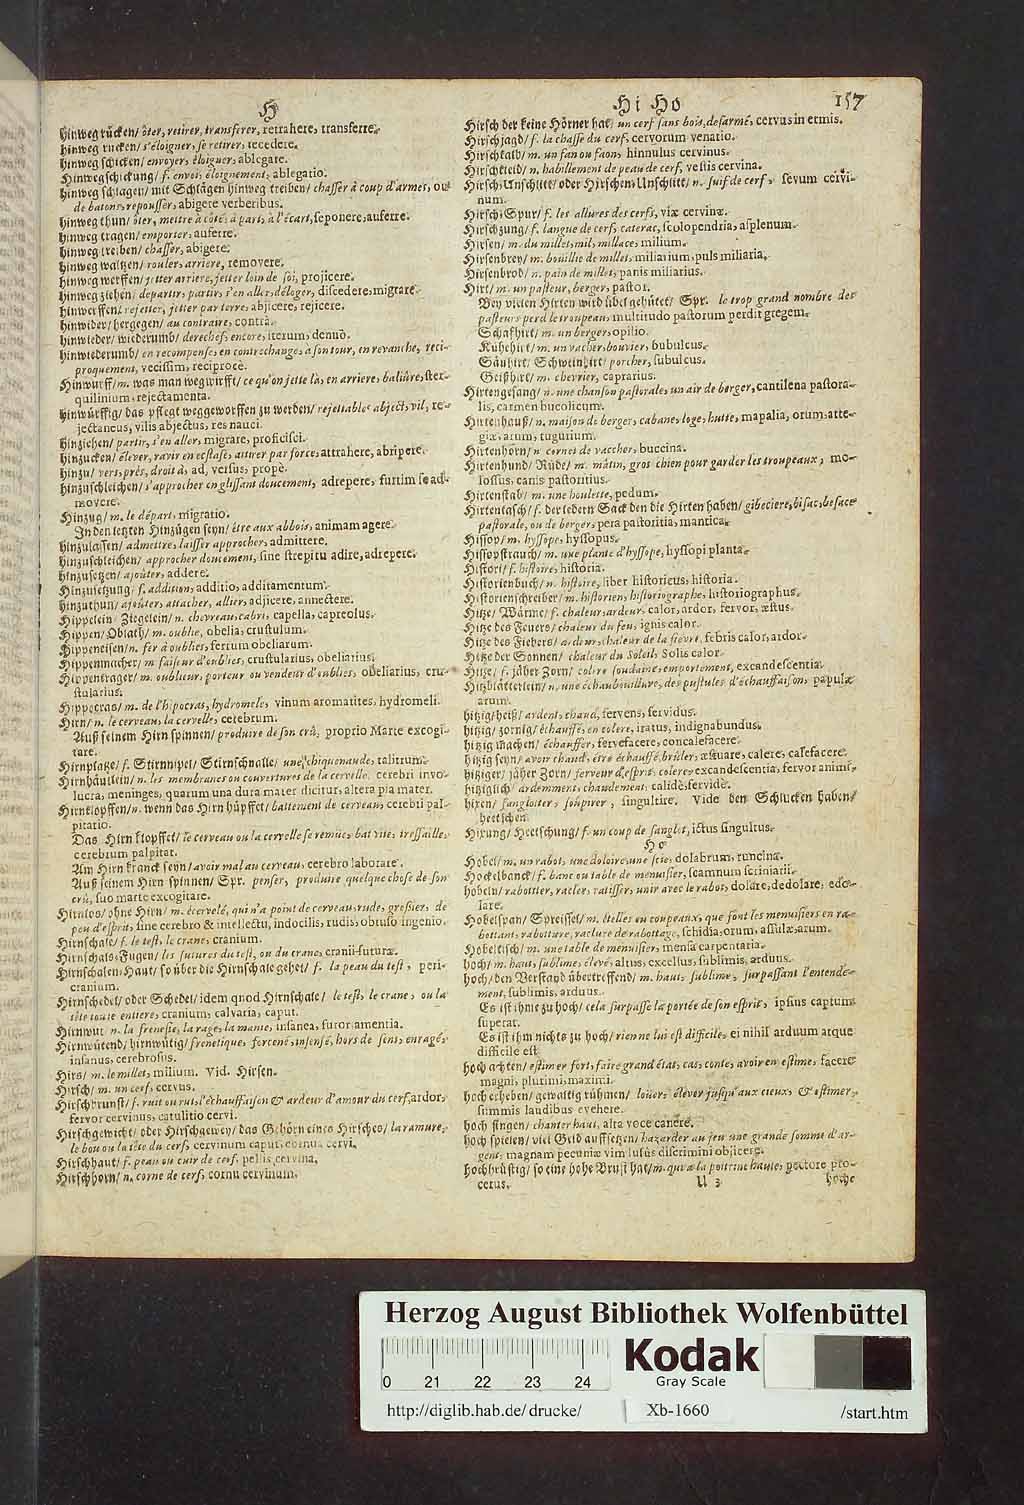 H
hinweg rücken/ ôter, retirer, transferer, retrahere, transferre.
hinweg rucken/ s'éloigner, se retirer, recedere.
hinweg schicken/ envoyer, éloigner, ablegare.
Hinwegschickung/ f. envoi, éloignement, ablegatio.
hinweg schlagen/ mit Schlägen hinweg treiben/ chasser à coup d'armes, ou
de batons, repousser, abigere verberibus.
hinweg thun/ ôter, mettre à côté, à part, à l'écart, seponere, auferre.
hinweg tragen/ emporter, auferre.
hinweg treiben/ chasser, abigere.
hinweg waltzen/ rouler, arriere, removere.
hinweg werffen/ jetter arriere, jetter loin de soi, projicere.
hinweg ziehen/ departir, partir, s'en aller, déloger, discedere, migrare.
hinwerffen/ rejetter, jetter par terre, abjicere, rejicere.
hinwider/ hergegen/ au contraire, contrà.
hinwieder/ wiederumb/ derechef, encore, iterum, denuò.
hinwiederumb/ en recompense, en contrechange, à son tour, en revanche, reci-
proquement, vecissim, reciprocè.
Hinwurff/ m. was man wegwirfft/ ce qu'on jette là, en arriere, baliûre, ster-
quilinium, rejectamenta.
hinwürffig/ das pflegt weggeworffen zu werden/ rejettable, abject, vil, re-
jectaneus, vilis abjectus, res nauci.
hinziehen/ partir, s'en aller, migrare, proficisci.
hinzucken/ élever, ravir en ecstase, attirer par force, attrahere, abripere.
hinzu/ vers, près, droit à, ad, versus, propè.
hinzuschleichen/ s'approcher en glissant doucement, adrepere, furtim se ad-
movere.
Hinzug/ m. le départ, migratio.
In den letzten Hinzügen seyn/ être aux abbois, animam agere.
hinzulassen/ admettre, laisser approcher, admittere.
hinzuschleichen/ approcher doucement, sine strepitu adire, adrepere.
hinzusetzen/ ajoûter, addere.
Hinzusetzung/ f. addition, additio, additamentum.
hinzuthun/ ajoûter, attacher, allier, adjicere, annectere.
Hippelein/ Ziegelein/ n. chevreau, cabri, capella, capreolus.
Hippen/ Oblath/ m. oublie, obelia, crustulum.
Hippeneisen/ n. fer à oublies, ferrum obeliarum.
Hippenmacher/ m faiseur d'oublies, crustularius, obeliarius.
Hippenträger/ m. oublieur, porteur ou vendeur d'oublies, obeliarius, cru-
stularius.
Hippocras/ m. de l'hipocras, hydromele, vinum aromatites, hydromeli.
Hirn/ n. le cerveau, la cervelle, cerebrum.
Auß seinem Hirn spinnen/ produire de son crû, proprio Marte excogi-
tare.
Hirnplatze/ f. Stirnnipel/ Stirnschnalle/ une chiquenaude, talitrum.
Hirnhäutlein/ n. les membranes ou couvertures de la cervelle, cerebri invo-
lucra, meninges, quarum una dura mater dicitur, altera pia mater.
Hirnklopffen/ n. wenn das Hirn hüpffet/ battement de cerveau, cerebri pal-
pitatio.
Das Hirn klopffet/ le cerveau ou la cervelle se remüe, bat vite, tressaille,
cerebrum palpitat.
Am Hirn kranck seyn/ avoir mal au cerveau, cerebro laborare.
Auß seinem Hirn spinnen/ Spr. penser, produire quelque chose de son
crû, suo marte excogitare.
Hirnlos/ ohne Hirn/ m. écervelé, qui n'a point de cerveau, rude, grossier, de
peu d'esprit, sine cerebro & intellectu, indocilis, rudis, obtuso ingenio.
Hirnschale/ f. le test, le crane, cranium.
Hirnschals-Fugen/ les sutures du test, ou du crane, cranii-suturæ.
Hirnschalen-Haut/ so über die Hirnschale gehet/ f. la peau du test, peri-
cranium.
Hirnschedel/ oder Schedel/ idem quod Hirnschale/ le test, le crane, ou la
tête toute entiere, cranium, calvaria, caput.
Hirnwut n. la frenesie, la rage, la manie, insania, furor, amentia.
Hirnwütend/ hirnwütig/ frenetique, forcené, insensé, hors de sens, enragé,
insanus, cerebrosus.
Hirs/ m. le millet, milium. Vid. Hirsen.
Hirsch/ m. un cerf, cervus.
Hirschbrunst/ f. ruit ou rut, l'échauffaison & ardeur d'amour du cerf, ardor,
fervor cervinus, catulitio cervi.
Hirschgewicht/ oder Hirschgewey/ das Gehörn eines Hirsches/ la ramure,
le bou ou la tête du cerf, cervinum caput, cornua cervi.
Hirschhaut/ f. peau ou cuir de cerf, pellis cervina.
Hirschhorn/ n. corne de cerf, cornu cervinum.
Hi Ho 157
Hirsch der keine Hörner hat/ un cerf sans bois, desarmé, cervus inermis.
Hirschjagd/ f. la chasse du cerf, cervorum venatio.
Hirschkalb/ m. un fan ou faon, hinnulus cervinus.
Hirschkleid/ n. habillement de peau de cerf, vestis cervina.
Hirsch-Unschlitt/ oder Hirschen-Unschlitt/ n. suif de cerf, sevum cervi-
num.
Hirsch-Spur/ f. les allures des cerfs, viæ cervinæ.
Hirschzung/ f. langue de cerf, caterac, scolopendria, asplenum.
Hirsen/ m. du millet, mil, millace, milium.
Hirsenbrey/ m. bouillie de millet, miliarium, puls miliaria.
Hirsenbrod/ n. pain de millet, panis miliarius.
Hirt/ m. un pasteur, berger, pastor.
Bey vielen Hirten wird übel gehütet/ Spr. le trop grand nombre des
pasteurs perd le troupeau, multitudo pastorum perdit gregem.
Schafhirt/ m. un berger, opilio.
Kühehirt/ m. un vacher, bouvier, bubulcus.
Säuhirt/ Schweinhirt/ porcher, subulcus.
Geißhirt/ m. chevrier, caprarius.
Hirtengesang/ n. une chanson pastorale, un air de berger, cantilena pastora-
lis, carmen bucolicum.
Hirtenhauß/ n. maison de berger, cabane, loge, hutte, mapalia, orum, atte-
giæ, arum, tugurium.
Hirtenhorn/ n cornet de vaccher, buccina.
Hirtenhund/ Rüde/ m. mâtin, gros chien pour garder les troupeaux, mo-
lossus, canis pastoritius.
Hirtenstab/ m. une houlette, pedum.
Hirtentasch/ f. der ledern Sack den die Hirten haben/ gibeciere, bisac, besace
pastorale, ou de berger, pera pastoritia, mantica.
Hissop/ m. hyssope, hyssopus.
Hissopstrauch/ m. une plante d'hyssope, hyssopi planta.
Histori/ f. histoire, historia.
Historienbuch/ n. histoire, liber historicus, historia.
Historienschreiber/ m. historien, historiographe, historiographus.
Hitze/ Wärme/ f. chaleur, ardeur, calor, ardor, fervor, æstus.
Hitze des Feuers/ chaleur du feu, ignis calor.
Hitze des Fiebers/ ardeur, chaleur de la fievre, febris calor, ardor.
Hitze der Sonnen/ chaleur du Soleil, Solis calor.
Hitze/ f. jäher Zorn/ colere soudaine, emportement, excandescentia.
Hitzblätterlein/ n. une échauboüillure, des pustules d'échauffaison, papulæ
arum.
hitzig/ heiß/ ardent, chaud, fervens, fervidus.
hitzig/ zornig/ échauffé, en colere, iratus, indignabundus.
hitzig machen/ échauffer, fervefacere, concalefacere.
hitzig seyn/ avoir chaud, être échauffé, brûler, æstuare, calere, calefacere.
hitziger/ jäher Zorn/ ferveur d'esprit, colere, excandescentia, fervor animi.
hitziglich/ ardemment, chaudement, calidè, fervidè.
hixen/ sangloter, soupirer, singultire. Vide den Schlucken haben/
heetschen.
Hixung/ Heetschung/ f. un coup de sanglot, ictus singultus.
Ho
Hobel/ m. un rabot, une doloire, une scie, dolabrum, runcina.
Hockelbanck/ f. banc ou table de menuisier, scamnum scriniarii.
hobeln/ rabotter, racler, ratisser, unir avec le rabot, dolare, dedolare, edo-
lare.
Hobelspan/ Spreissel/ m. ételles ou coupeaux, que font les menuisiers en ra-
bottant, rabotture, raclure de rabottage, schidia, orum, assulæ, arum.
Hobeltisch/ m. une table de menuisier, mensa carpentaria.
hoch/ m. haut, sublime, élevé, altus, excelsus, sublimis, arduus.
hoch/ den Verstand übertreffend/ m. haut, sublime, surpassant l'entende-
ment, sublimis, arduus.
Es ist ihme zu hoch/ cela surpasse la portée de son esprit, ipsius captum
superat.
Es ist ihm nichts zu hoch/ rien ne lui est difficile, ei nihil arduum atque
difficile est.
hoch achten/ estimer fort, faire grand état, cas, conte, avoir en estime, facere
magni, plurimi, maximi.
hoch erheben/ gewaltig rühmen/ loüer, élever jusqu'aux cieux, & estimer,
summis laudibus evehere.
hoch singen/ chanter haut, alta voce canere.
hoch spielen/ viel Geld auffsetzen/ hazarder au jeu une grande somme d'ar-
gent, magnam pecuniæ vim lusûs discrimini objicere.
hochbrüstig/ so eine hohe Brust hat/ m. qui a la poitrine haute, pectore pro-
cerus.
U 3 hoche
Herzog August Bibliothek Wolfenbüttel
Kodak
Gray Scale
0 21 22 23 24
http://diglib.hab.de/drucke/ Xb-1660 /start.htm